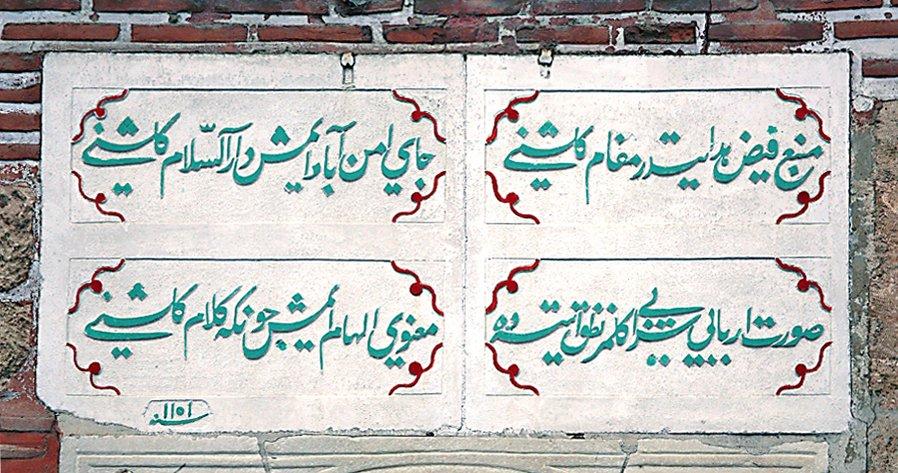 منبع فیض هدایتدر مقام کاشنی
جای امن آباد ایمش دار السلام کاشنی
صورت اربابی اکلمز نطق ایتسه ده
معنوی الهام ایمش چونکه کلام کاشنی
سنه ١١٥١